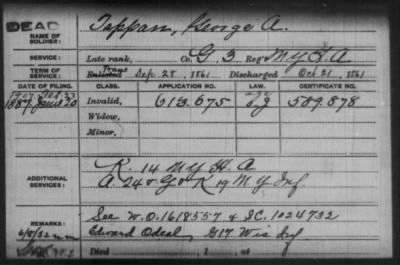 DEAD
NAME OF SOLDIER: Tappan, George A.
SERVICE: Late rank, Co. G. 3 Reg't N Y H. A
TERM OF SERVICE: Trans Enlisted Sep. 28, 1861 Discharged Oct 21, 1861
DATE OF FILING. CLASS. APPLICATION NO. LAW. CERTIFICATE NO.
1887 June 20 Invalid, 613.675 589.878
Widow,
Minor,
ADDITIONAL SERVICES: K. 14 N Y H. A
A. 24 G K 19 N Y Inf.
REMARKS: See W.O. 1618557 & S.C. 1024732
Edward Odeal, G17 Wis Inf
Died , 1 , at